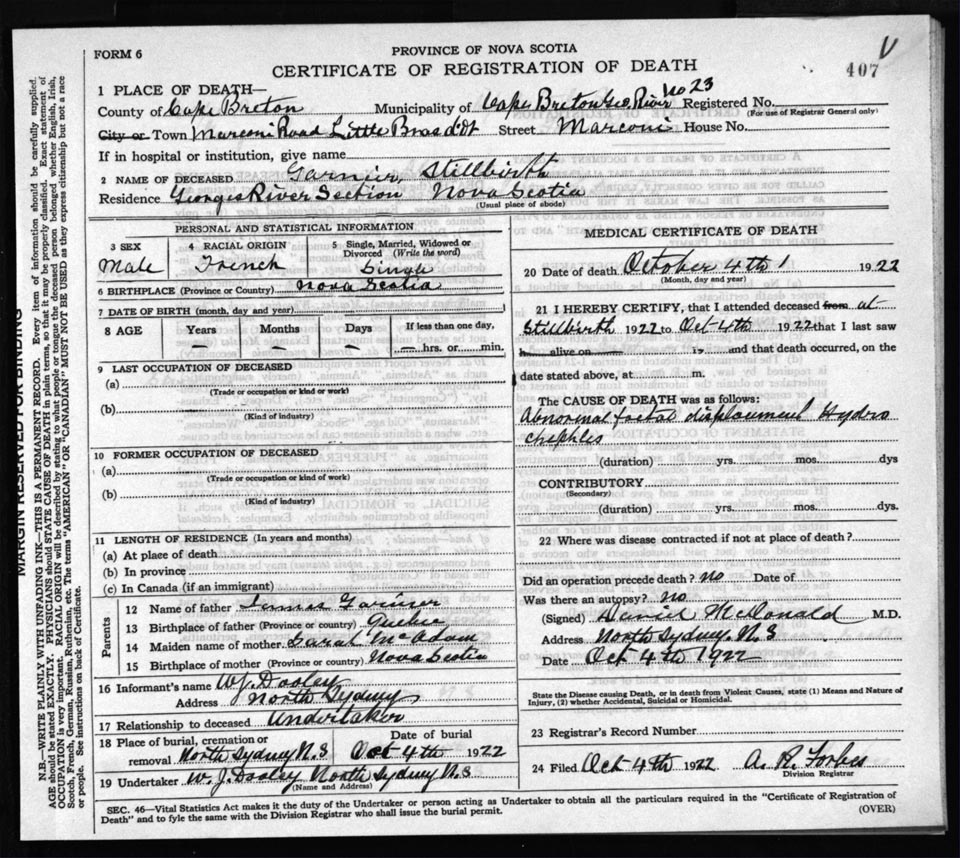 FORM 6
PROVINCE OF NOVA SCOTIA
CERTIFICATE OF REGISTRATION OF DEATH
407
1 PLACE OF DEATH—
County of Cape Breton Municipality of Cape Breton Geo. River No 23 Registered No.
(For use of Registrar General only)
City or Town Marconi Road Little Bras d'or Street Marconi House No.
If in hospital or institution, give name
2 NAME OF DECEASED Garnier, Stillbirth
Residence Georges River Section Nova Scotia
(Usual place of abode)
PERSONAL AND STATISTICAL INFORMATION
3 SEX 4 RACIAL ORIGIN 5 Single, Married, Widowed or Divorced (Write the word)
Male French Single
6 BIRTHPLACE (Province or Country) Nova Scotia
7 DATE OF BIRTH (month, day and year)
8 AGE Years Months Days If less than one day,
— — — — hrs. or — min.
9 LAST OCCUPATION OF DECEASED
(a)
(Trade or occupation or kind of work)
(b)
(Kind of industry)
10 FORMER OCCUPATION OF DECEASED
(a)
(Trade or occupation or kind of work)
(b)
(Kind of industry)
11 LENGTH OF RESIDENCE (In years and months)
(a) At place of death
(b) In province
(c) In Canada (if an immigrant)
Parents
12 Name of father Garnier
13 Birthplace of father (Province or country) Quebec
14 Maiden name of mother Sarah McAdam
15 Birthplace of mother (Province or country) Nova Scotia
16 Informant's name W.J. Dooley
Address North Sydney N S
17 Relationship to deceased Undertaker
18 Place of burial, cremation or removal North Sydney N.S Date of burial Oct 4th 1922
19 Undertaker W. J. Dooley North Sydney N.S
(Name and Address)
MEDICAL CERTIFICATE OF DEATH
20 Date of death October 4th 1922
(Month, day and year)
21 I HEREBY CERTIFY, that I attended deceased from at
Stillbirth 1922 to Oct 4th 1922 that I last saw
h— alive on — 19— and that death occurred, on the
date stated above, at m.
The CAUSE OF DEATH was as follows:
Abnormal foetal Hydro
(duration) yrs. mos. dys
CONTRIBUTORY
(Secondary)
(duration) yrs. mos. dys.
22 Where was disease contracted if not at place of death?
Did an operation precede death? no Date of
Was there an autopsy? no
(Signed) McDonald M.D.
Address North Sydney N.S
Date Oct 4th 1922
State the Disease causing Death, or in death from Violent Causes, state (1) Means and Nature of
Injury, (2) whether Accidental, Suicidal or Homicidal.
23 Registrar's Record Number
24 Filed Oct 4th 1922 A. R. Forbes
Division Registrar
SEC. 46—Vital Statistics Act makes it the duty of the Undertaker or person acting as Undertaker to obtain all the particulars required in the "Certificate of Registration of
Death" and to fyle the same with the Division Registrar who shall issue the burial permit.
(OVER)
MARGIN RESERVED FOR BINDING
N.B.—WRITE PLAINLY WITH UNFADING INK—THIS IS A PERMANENT RECORD. Every item of information should be carefully supplied.
AGE should be stated EXACTLY. PHYSICIANS should STATE CAUSE OF DEATH in plain terms, so that it may be properly classified. Exact statement of
OCCUPATION is very important. RACIAL ORIGIN will be described by stating to what people or tongue the deceased person belonged whether English, Irish,
Scotch, French, German, Russian, Ruthenian, etc. The terms "AMERICAN" OR "CANADIAN" MUST NOT BE USED as they express citizenship but not a race
or people. See instructions on back of Certificate.